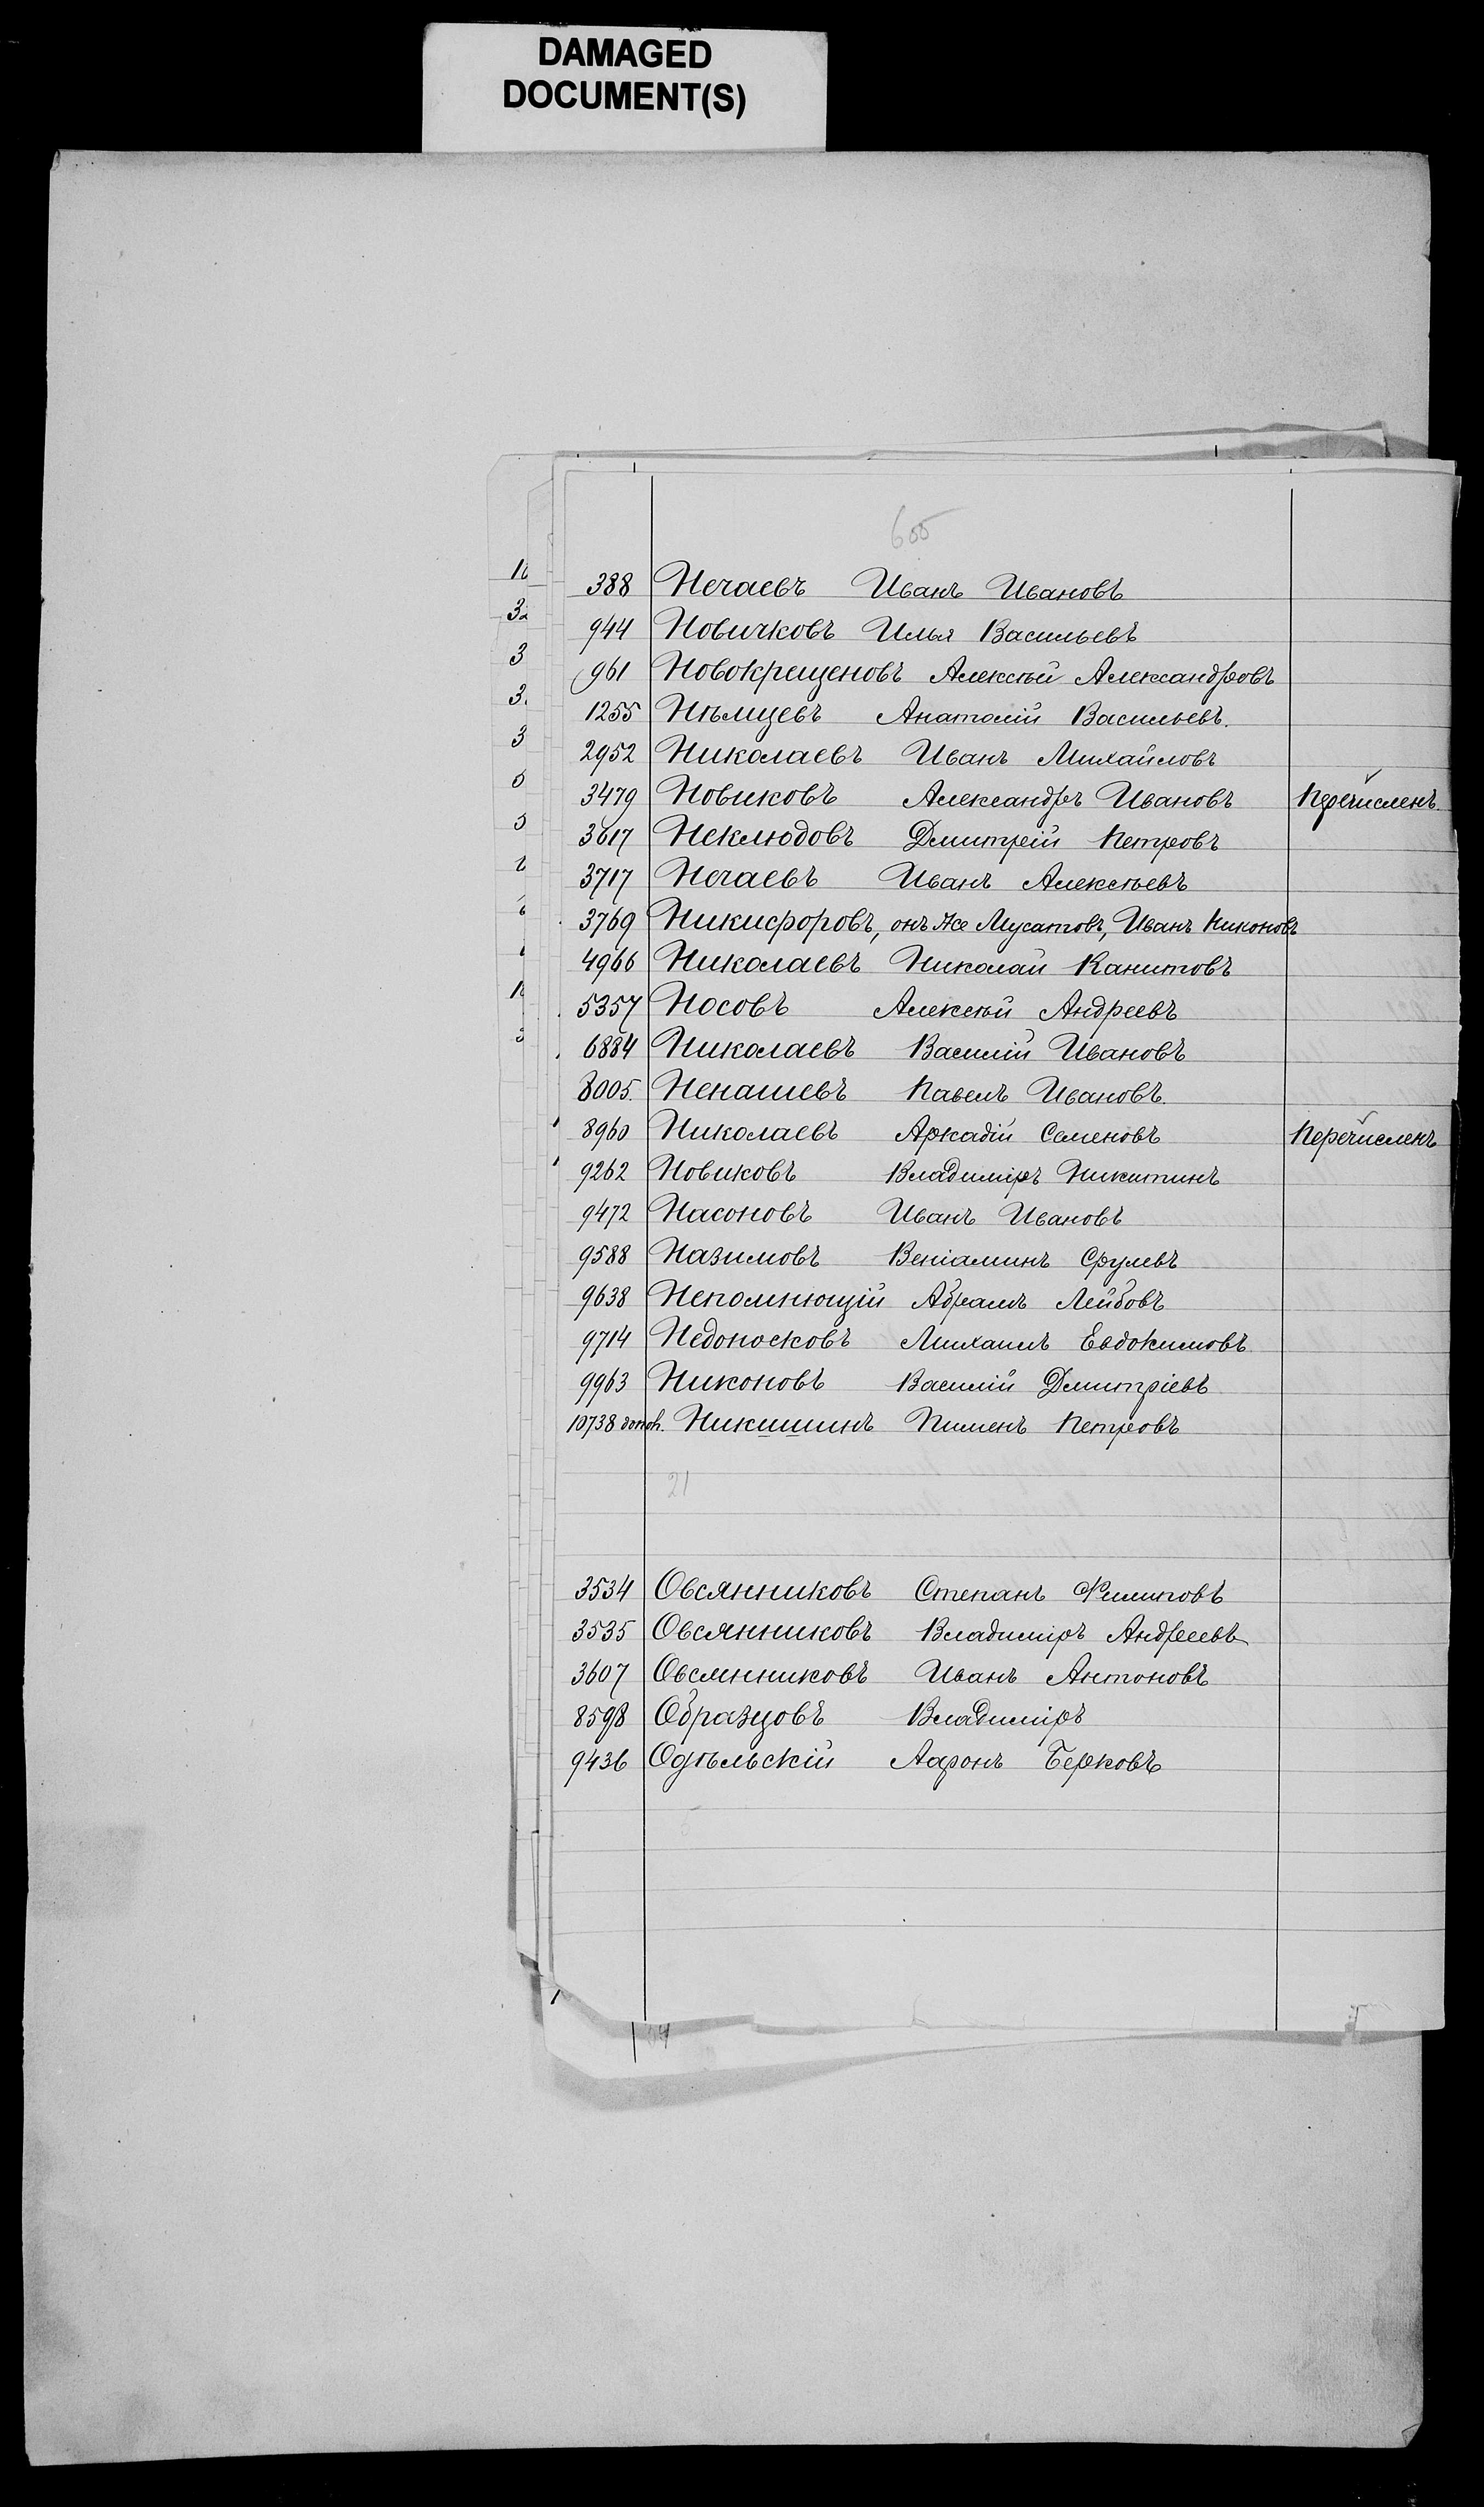 DAMAGED
DOCUMENT(S)
388 Нечаевъ Иванъ Ивановъ
944 Новичковъ Илья Васильевъ
961 Новокрещеновъ Алексѣй Александровъ
1255 Нѣмцевъ Анатолій Васильевъ.
2952 Николаевъ Иванъ Михайловъ
3479 Новиковъ Александръ Ивановъ Перечисленъ.
3617 Неклюдовъ Дмитрій Петровъ
3717 Нечаевъ Иванъ Алексѣевъ
3769 Никифоровъ, онъ же Мусатовъ, Иванъ Никоновъ
4966 Николаевъ Николай Капитовъ
5357 Носовъ Алексѣй Андреевъ
6884 Николаевъ Василій Ивановъ
8005. Ненашевъ Павелъ Ивановъ.
8960 Николаевъ Аркадій Семеновъ Перечисленъ
9262 Новиковъ Владиміръ Никитинъ
9472 Насоновъ Иванъ Ивановъ
9588 Назимовъ Веніаминъ Срулевъ
9638 Непомнющій Абрамъ Лейбовъ
9714 Недоносковъ Михаилъ Евдокимовъ
9963 Никоновъ Василій Дмитріевъ
10738 Никишинъ Пименъ Петровъ
21
3534 Овсянниковъ Степанъ Филиповъ
3535 Овсянниковъ Владиміръ Андреевъ
3607 Овсянниковъ Иванъ Антоновъ
8598 Образцовъ Владиміръ
9436 Одѣльскій Ааронъ Берковъ